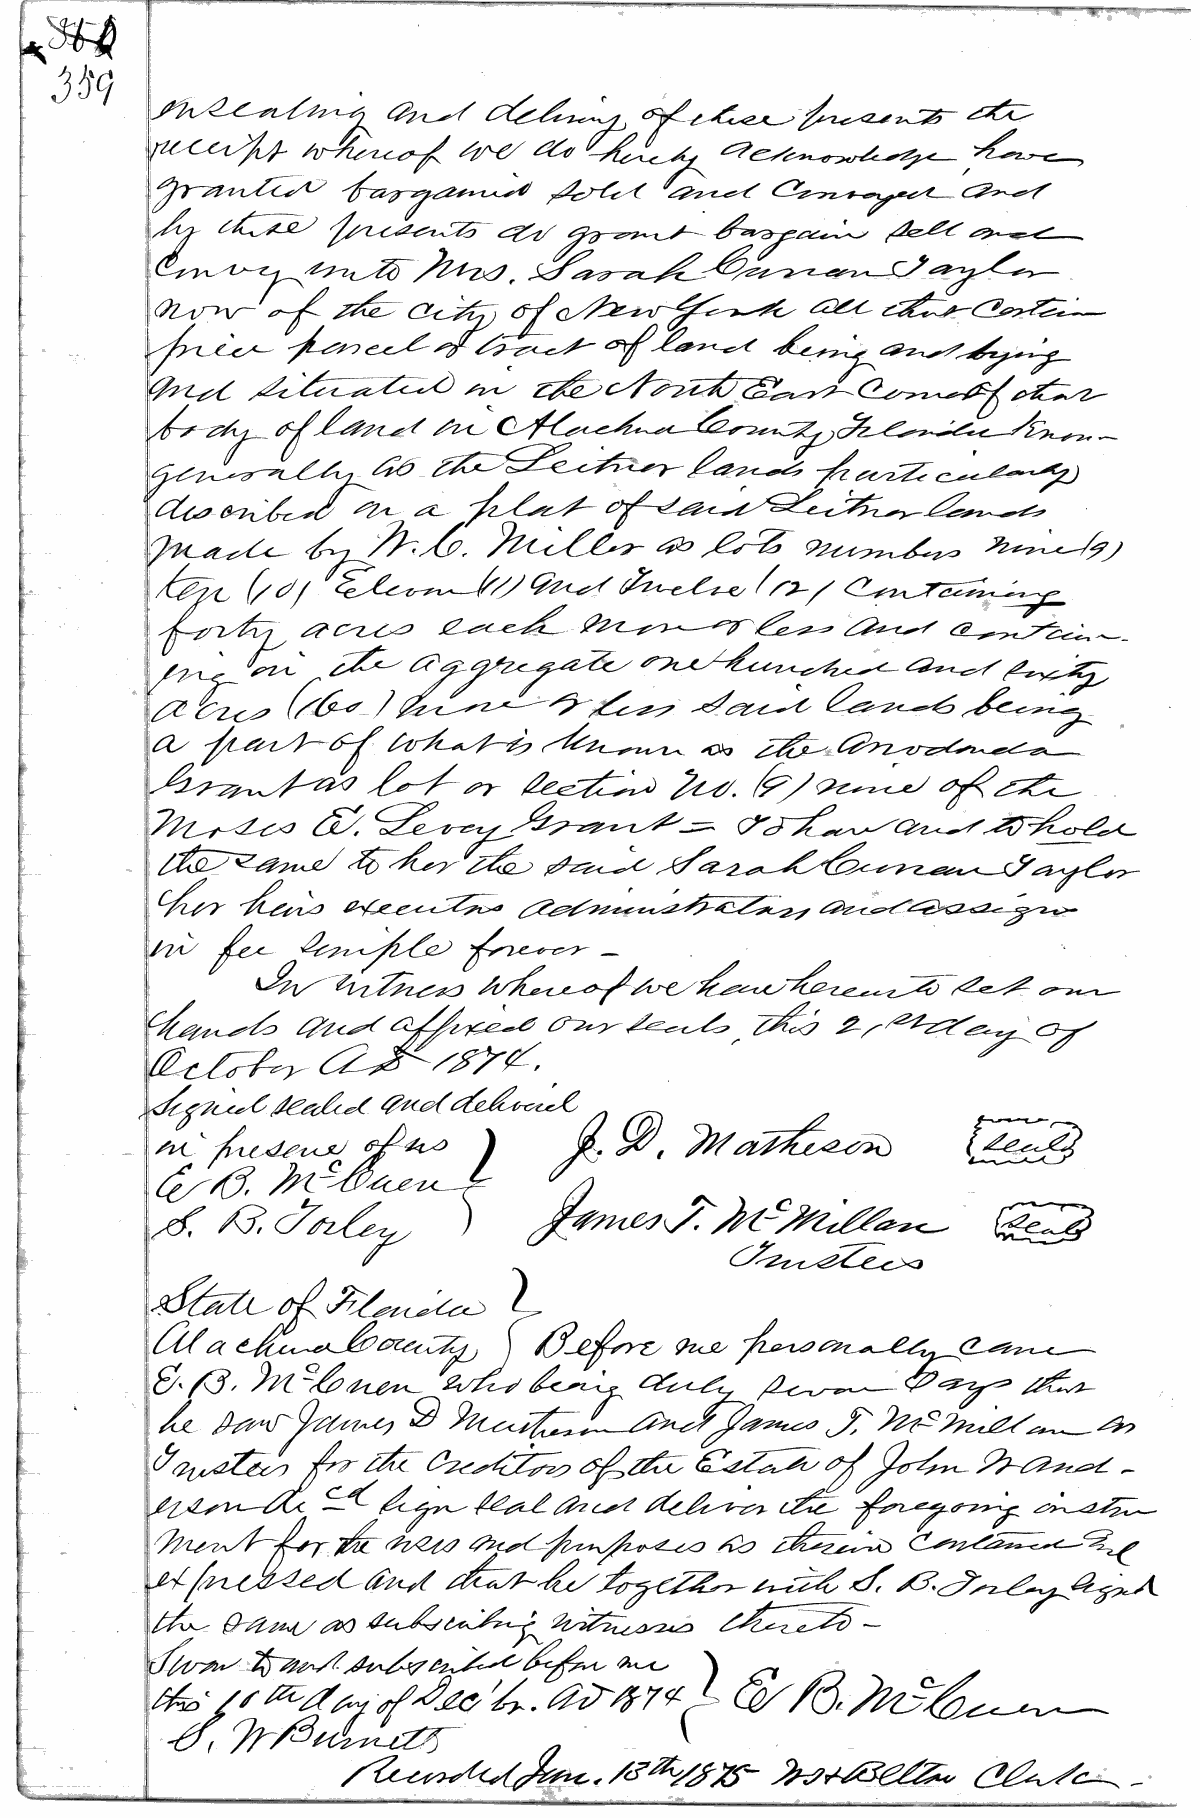 359
ensealing and delivry of these presents the
receipt whereof we do hereby acknowledge have
granted bargained sold and conveyed and
by these presents do grant bargain sell and
convey unto Mrs. Sarah Curran Taylor
now of the city of New York all that certain
piece parcel or tract of land being and lying
and situated in the North East Corner of that
body of land in Alachua County Florida Known
generally as the Leitner lands particularly
described on a plat of said Leitner lands
made by W. C. Miller as lots numbers nine (9)
ten (10) Eleven (11) and Twelve (12) containing
forty acres each more or less and contain-
ing in the aggregate one hundred and sixty
acres (160) more or less said lands being
a part of what is known as the Arredondo
Grant as lot or section No. (9) nine of the
Moses E. Levey Grant = To have and to hold
the same to her the said Sarah Curran Taylor
her heirs executors administrators and assigns
in fee simple forever -
In witness whereof we have hereunto set our
hands and affixed our seals, this 21st day of
October AD 1874.
Signed sealed and delivered
in presence of us
J. D. Matheson seal
E B. McCuen
S. B. Forley
James T. McMillan seal
Trustees
State of Florida
Alachua County } Before me personally came
E. B. McCuen who being duly sworn Says that
he saw James D Matheson and James T. McMillan as
Trustees for the Creditors of the Estate of John W And-
erson decd sign seal and deliver the foregoing instru
ment for the uses and purposes as therein contained and
expressed and that he together with S. B. Forley signed
the same as subscribing witnesses thereto -
Sworn to and subscribed before me
this 10th day of Decbr. AD 1874 } E B. McCuen
S. W Burnett
Recorded Jan. 13th 1875 Clerk -